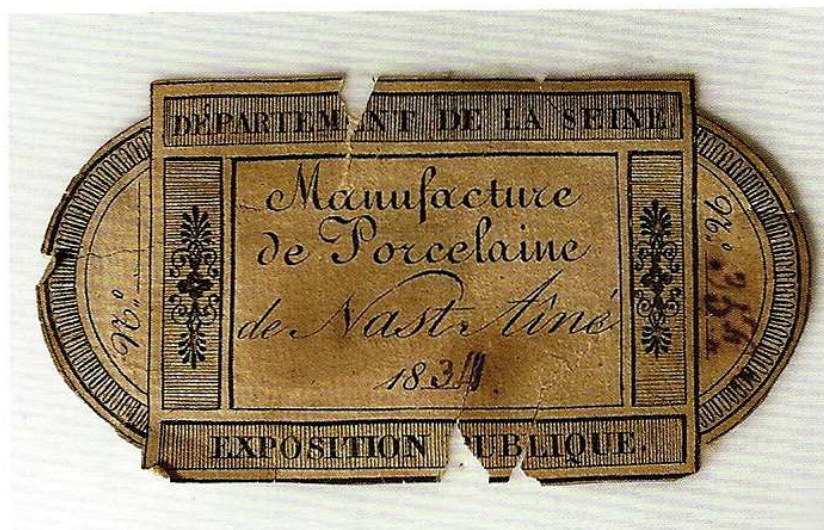 DÉPARTEMENT DE LA SEINE.
Manufacture
de Porcelaine
de Nast Aîné
EXPOSITION PUBLIQUE.